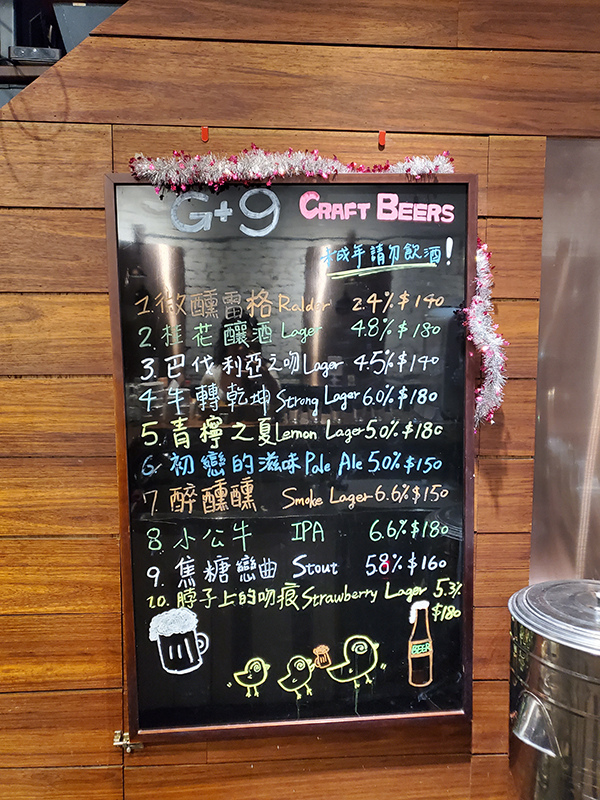 G+9 CRAFT BEERS
未成年請勿飲酒!
1. 微醺雷格 Ralder 2.4% $140
2. 桂花釀酒 Lager 4.8% $180
3. 巴伐利亞之吻 Lager 4.5% $140
4. 牛轉乾坤 Strong Lager 6.0% $180
5. 青檸之夏 Lemon Lager 5.0% $180
6. 初戀的滋味 Pale Ale 5.0% $150
7. 醉醺醺 Smoke Lager 6.6% $150
8. 小公牛 IPA 6.6% $180
9. 焦糖戀曲 Stout 5.8% $160
10. 脖子上的吻痕 Strawberry Lager 5.3%
$180
BEER